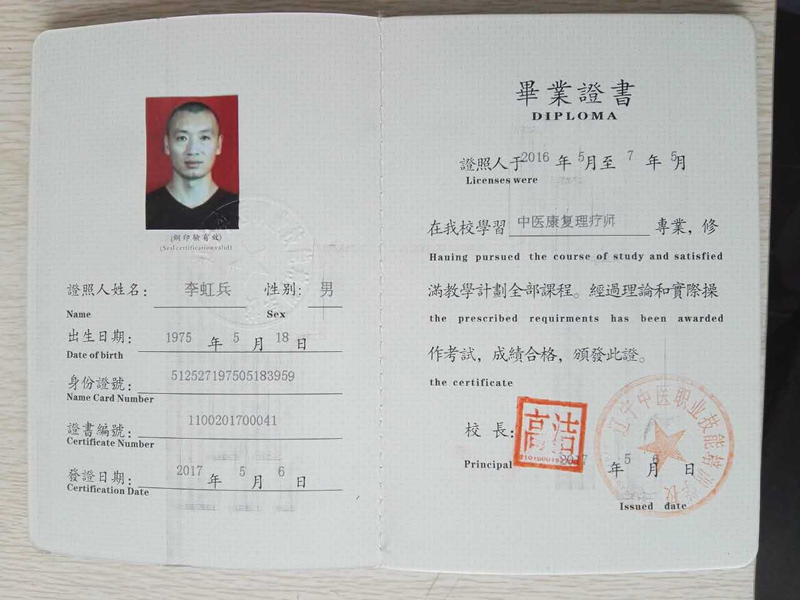 (鋼印驗有效)
(Seal certification valid)
證照人姓名: 李虹兵 性别: 男
Name Sex
出生日期: 1975 年 5 月 18 日
Date of birth
身份證號: 512527197505183959
Name Card Number
證書編號: 1100201700041
Certificate Number
發證日期: 2017 年 5 月 6 日
Certification Date
畢業證書
DIPLOMA
證照人于2016 年 5月至 7 年 5月
Licenses were
在我校學習 中医康复理疗师 專業，修
Hauing pursued the course of study and satisfied
滿教學計劃全部課程。經過理論和實際操
the prescribed requirments has been awarded
作考試，成績合格，頒發此證。
the certificate
校長: 高洁
Principal
2017 年 5 月 6 日
Issued date
辽宁中医职业技能培训学校